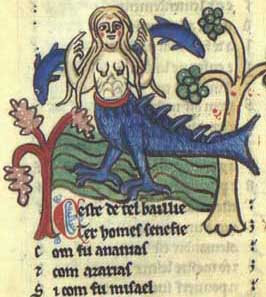 Ceste de tel baillie
Tex homes senefie
C om fu ananias
⁊ com azarias
S i com fu misael